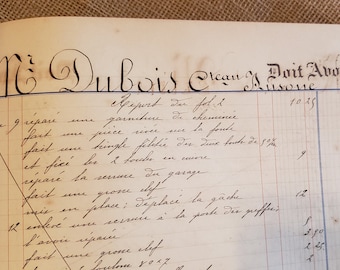 Mr. Dubois Cteau Ausone Doit Avo
Report du fol 2 10.25
9 réparé une garniture de cheminée
fait une pièce vissé sur la fonte
fait une tringle filetée des
et fixé les 2 boutons en cuivre 9
réparé la serrure du garage
fait une grosse clef
mis en place, déplacé la gâche 12
12 enlevé une serrure à la porte des greffes
l'avoir réparée 8
fait une grosse clef 2.25
boulons 2